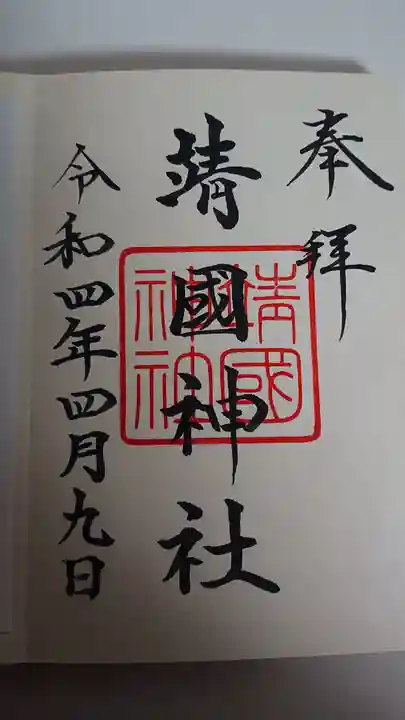 奉拝
靖國神社
靖國神社
令和四年四月九日